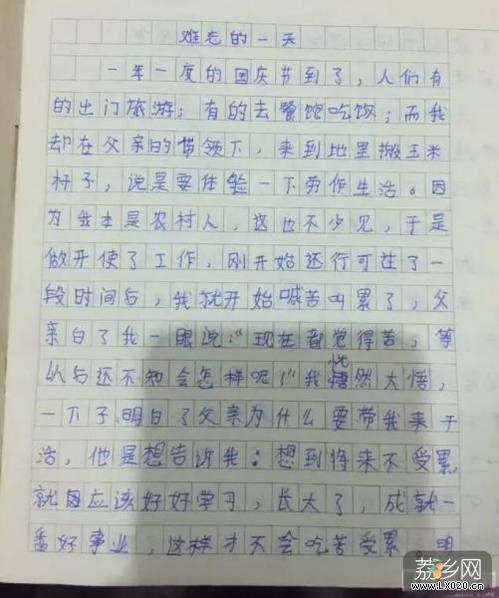 难忘的一天
一年一度的国庆节到了，人们有
的出门旅游；有的去餐馆吃饭；而我
却在父亲的带领下，来到地里搬玉米
杆子，说是要体验一下劳作生活。因
为我本是农村人，这也不少见，于是
便开使了工作，刚开始还行可过了一
段时间后，我就开始喊苦叫累了，父
亲白了我一眼说："现在都觉得苦，等
以后还不知会怎样呢！"我恍然大悟，
一下子明白了父亲为什么要带我来干
活，他是想告诉我：想到将来不受累，
就因应该好好学习，长大了，成就一
番好事业，这样才不会吃苦受累，明
荔乡网
www.LX020.cn